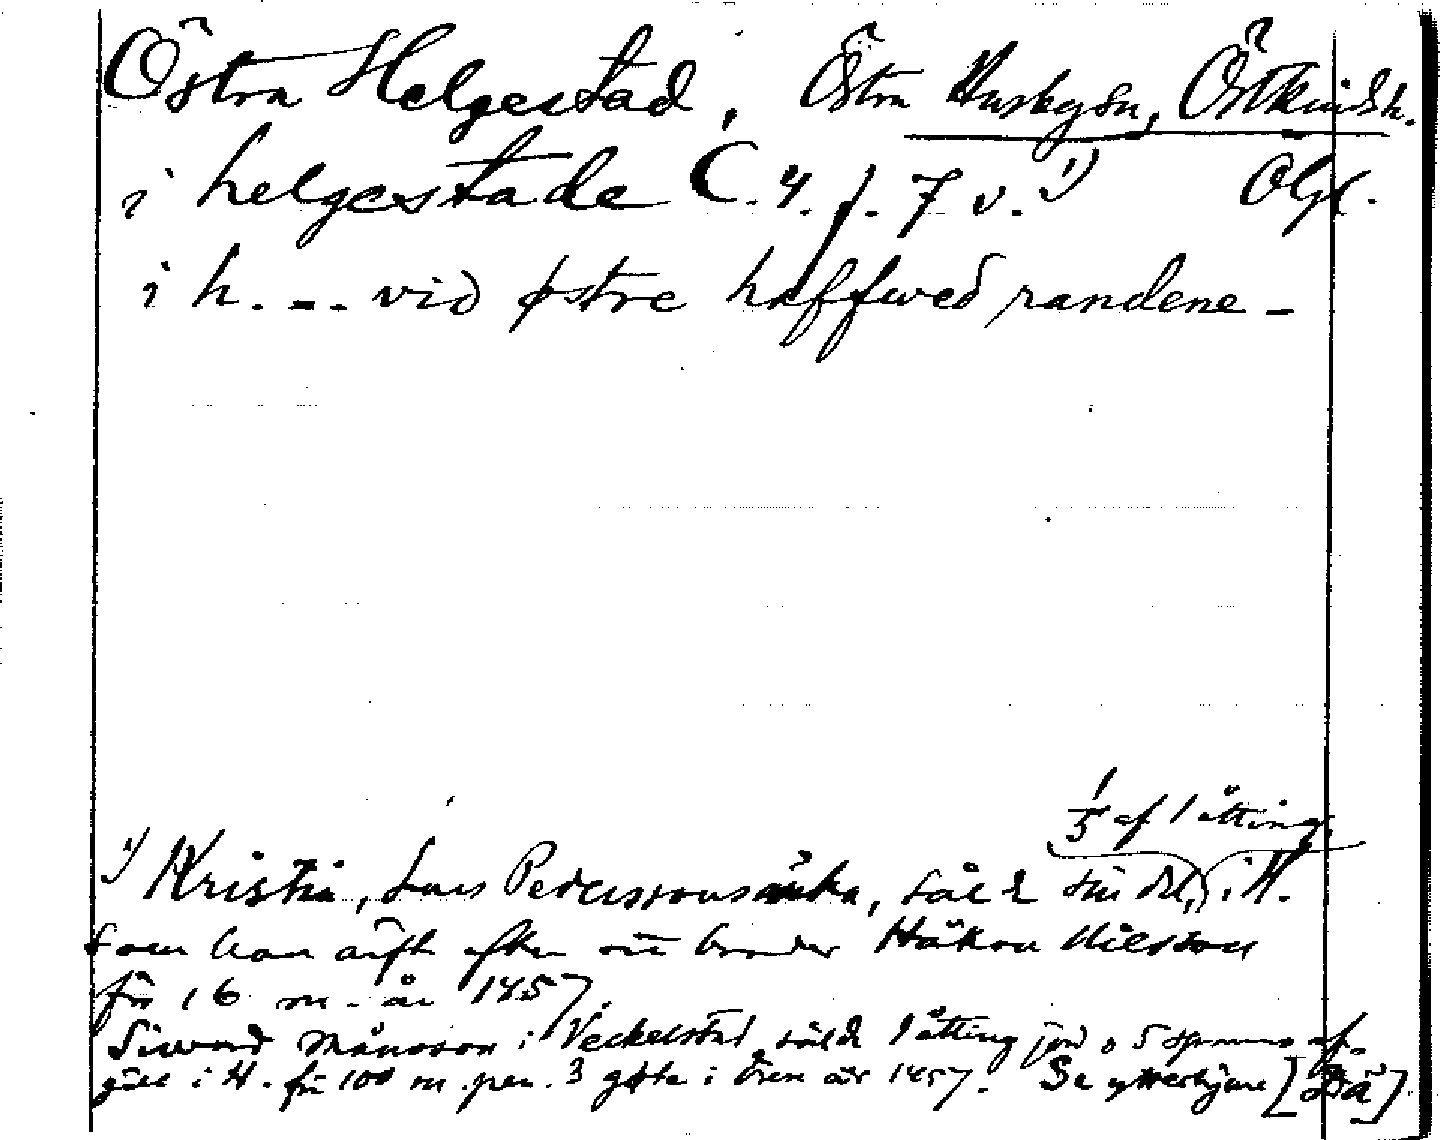 Östra Helgestad, Östra Husby sn, Östkinds h.
i helgestade C. 4. f. 7 v. 1) Ögl.
i h. --- vid østre haffwed randene -
1/5 af 1 åtting
1) Kristin, Lars Pederssons änka, sålt sin del, i H.
som hon ärft efter sin broder Håkon Nilsson
för 16 m. år 1457.
Siword Månsson i Veckelstad sålde 1 åtting jord o 5 spanna af-
gäld i H. för 100 m. pen. 3 göta i ören år 1457. Se ytterligare